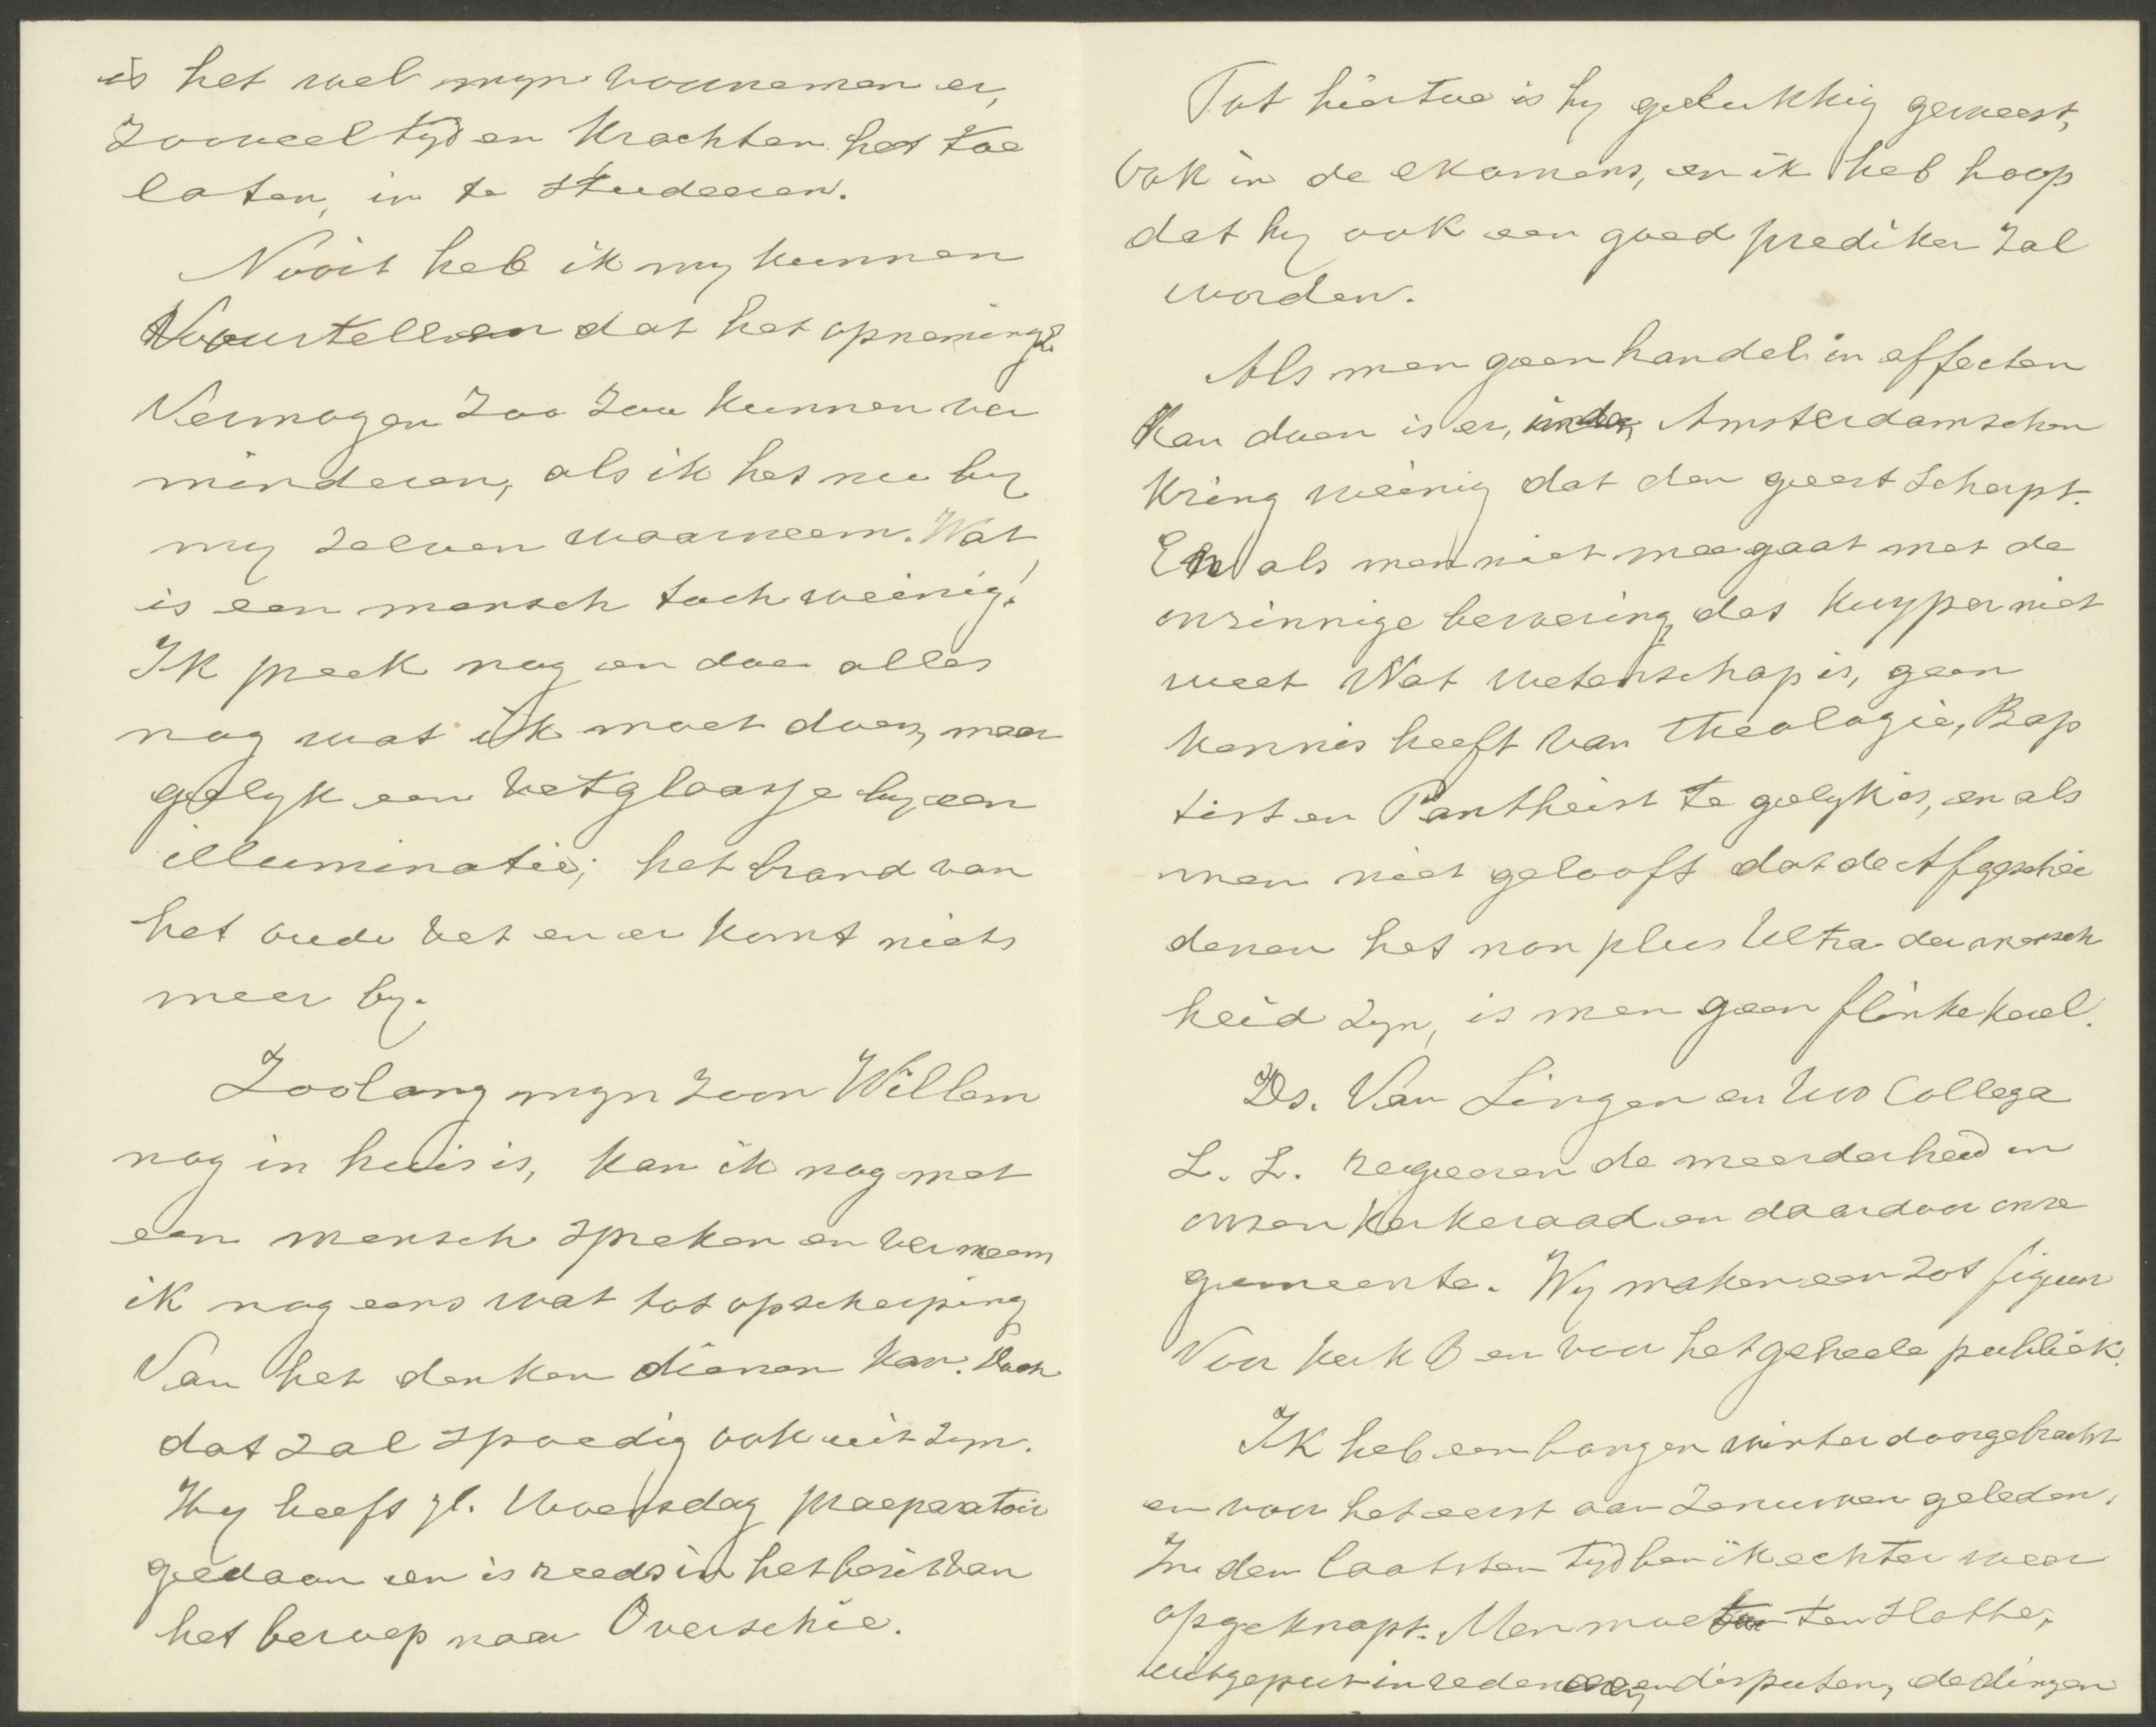 is het wel mijn voornemen er,
zooveel tijd en krachten het toe
laten, in te studeeren.
Nooit heb ik mij kunnen
voorstellen dat het opnemings
vermogen zoo zou kunnen ver
minderen, als ik het nu bij
mij zelven waarneem. Wat
is een mensch toch weinig!
Ik preek nog en doe alles
nog wat ik moet doen, maar
gelijk een vetglaasje bij een
illuminatie; het brand van
het oude vet en er komt niets
meer bij.
Zoolang mijn zoon Willem
nog in huis is, kan ik nog met
een mensch spreken en verneem
ik nog eens wat tot opscherping
van het denken dienen kan. Doch
dat zal spoedig ook uit zijn.
Hij heeft jl. Woensdag praeparatoir
gedaan en is reeds in het bezit van
het beroep naar Overschie.
Tot hiertoe is hij gelukkig geweest,
ook in de examens, en ik heb hoop
dat hij ook een goed prediker zal
worden.
Als men geen handel in effecten
kan doen is er, in den Amsterdamschen
kring weinig dat den geest scherpt.
En als men niet meegaat met de
onzinnige bewering, dat Kuyper niet
weet wat wetenschap is, geen
kennis heeft van theologie, Bap
tist en Pantheist te gelijk is, en als
men niet gelooft dat de Afgeschei
denen het non plus ultra der mensch
heid zijn, is men geen flinke kerel.
Ds. Van Lingen en uw Collega
L. L. regeeren de meerderheid in
onzen kerkeraad en daardoor onze
gemeente. Wij maken een zot figuur
voor kerk B en voor het geheele publiek.
Ik heb een bangen winter doorgebracht
en voor het eerst aan zenuwen geleden.
In den laatsten tijd ben ik echter weer
opgeknapt. Men moet ten slotte,
uitgeput in reden en disputen, de dingen